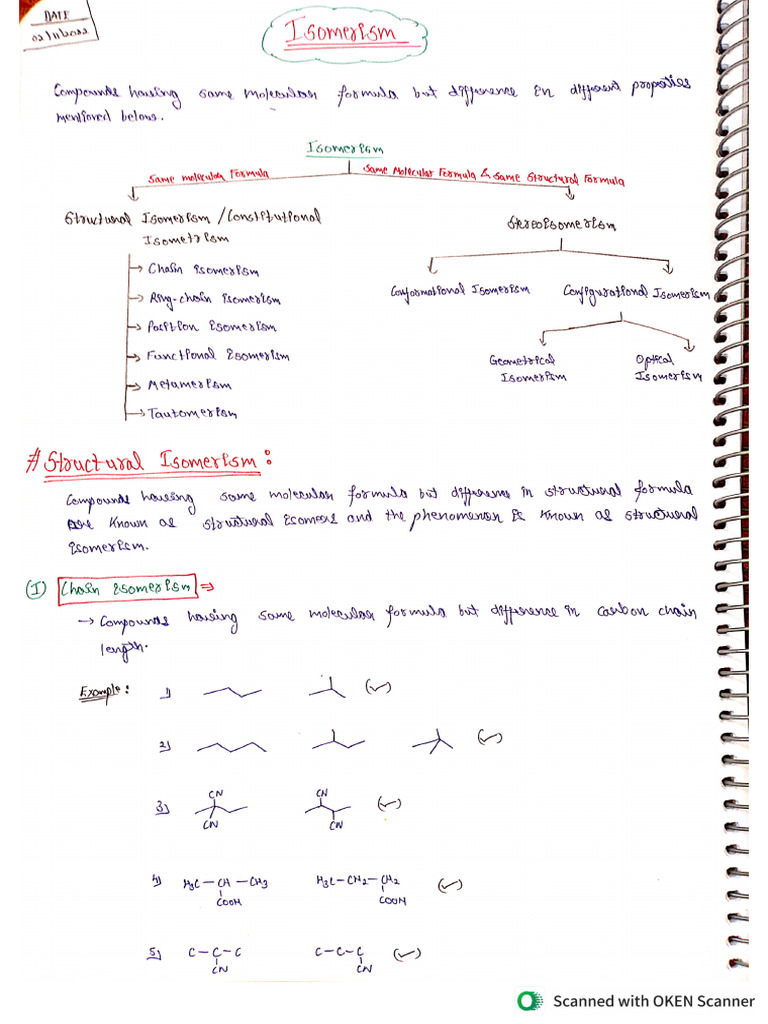 DATE
02/11/2022
Isomerism
Compounds having same molecular formula but difference in different properties
mentioned below.
Isomerism
Same molecular Formula
Same Molecular Formula & Same Structural Formula
Structural Isomerism / Constitutional
Isometrism
Stereoisomerism
→ Chain isomerism
→ Ring-chain isomerism
→ Position isomerism
→ Functional isomerism
→ Metamerism
→ Tautomerism
Conformational Isomerism
Configurational Isomerism
Geometrical
Isomerism
Optical
Isomerism
# Structural Isomerism :
Compounds having same molecular formula but difference in structural formula
are known as structural isomers and the phenomenon is known as structural
isomerism.
(I) Chain isomerism ⇒
→ Compounds having same molecular formula but difference in carbon chain
length.
Example : 1) (✓)
2) (✓)
3) CN CN CN CN (✓)
4) H3C - CH - CH3 H3C - CH2 - CH2 (✓)
COOH COOH
5) C - C - C C - C - C (✓)
CN CN
Scanned with OKEN Scanner